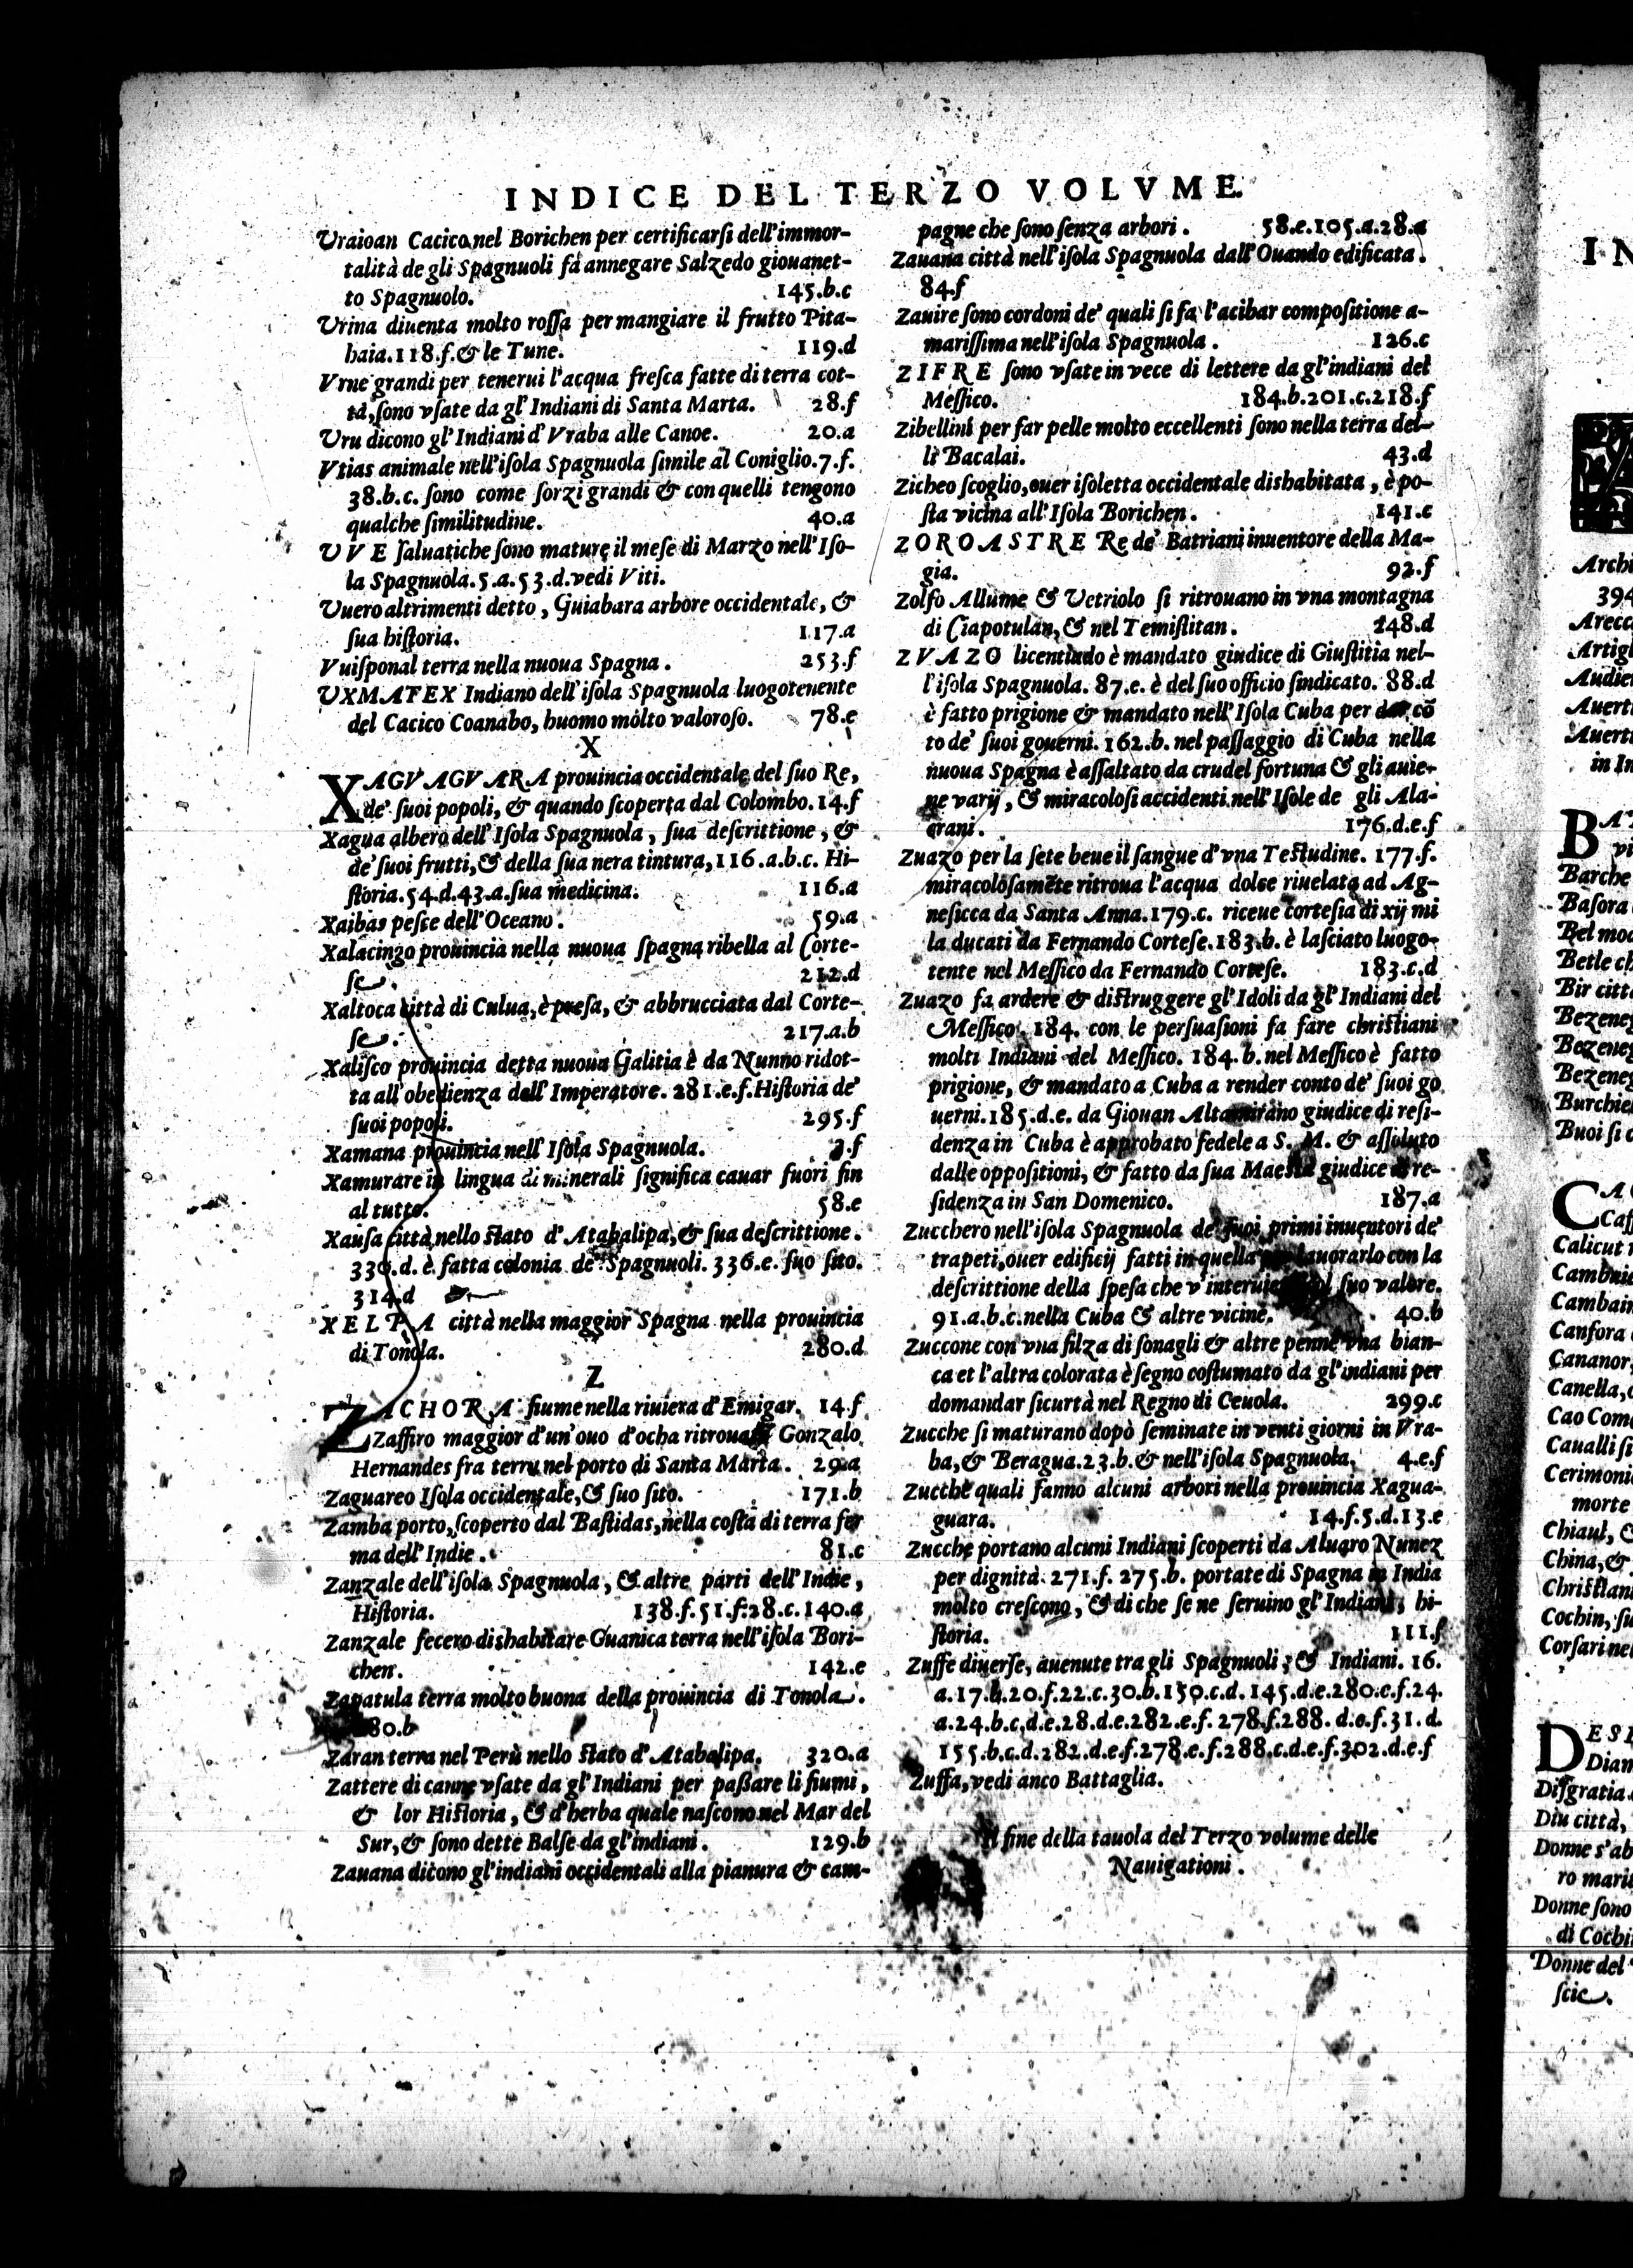 INDICE DEL TERZO VOLVME.
Vraioan Cacico nel Borichen per certificarſi dell'immor-
talità de gli Spagnuoli fà annegare Salzedo giouanet-
to Spagnuolo. 145.b.c
Vrina diuenta molto roſſa per mangiare il frutto Pita-
haia.118.f.& le Tune. 119.d
Vrne grandi per tenerui l'acqua freſca fatte di terra cot-
ta, ſono vſate da gl'Indiani di Santa Marta. 28.f
Vru dicono gl'Indiani d'Vraba alle Canoe. 20.a
Vtias animale nell'iſola Spagnuola ſimile al Coniglio.7.f.
38.b.c. ſono come ſorzi grandi & con quelli tengono
qualche ſimilitudine. 40.a
VVE ſaluatiche ſono mature il meſe di Marzo nell'Iſo-
la Spagnuola.5.a.53.d.vedi Viti.
Vuero altrimenti detto, Guiabara arbore occidentale, &
ſua hiſtoria. 117.a
Vuiſponal terra nella nuoua Spagna. 253.f
VXMATEX Indiano dell'iſola Spagnuola luogotenente
del Cacico Coanabo, huomo molto valoroſo. 78.e
X
XAGVAGVARA prouincia occidentale del ſuo Re,
de' ſuoi popoli, & quando ſcoperta dal Colombo.14.f
Xagua albero dell'Iſola Spagnuola, ſua deſcrittione, &
de' ſuoi frutti, & della ſua nera tintura,116.a.b.c. Hi-
ſtoria.54.d.43.a.ſua medicina. 116.a
Xaibas peſce dell'Oceano. 59.a
Xalacingo prouincia nella nuoua ſpagna ribella al Corte-
ſe. 212.d
Xaltoca città di Culua, è preſa, & abbrucciata dal Corte-
ſe. 217.a.b
Xaliſco prouincia detta nuoua Galitia è da Nunno ridot-
ta all'obedienza dell'Imperatore. 281.e.f.Hiſtoria de'
ſuoi popoli. 295.f
Xamana prouincia nell'Iſola Spagnuola. 3.f
Xamurare in lingua di minerali ſignifica cauar fuori fin
al tutto. 58.e
Xauſa città nello ſtato d'Atabalipa, & ſua deſcrittione.
330.d. è fatta colonia de' Spagnuoli. 336.e. ſuo ſito.
314.d
XELPA città nella maggior Spagna nella prouincia
di Tonola. 280.d
Z
ZACHORA fiume nella riuiera d'Emigar. 14.f
Zaffiro maggior d'un'ouo d'ocha ritrouaſſi Gonzalo
Hernandes fra terra nel porto di Santa Marta. 29.a
Zaguareo Iſola occidentale, & ſuo ſito. 171.b
Zamba porto, ſcoperto dal Baſtidas, nella coſta di terra fer
ma dell'Indie. 81.c
Zanzale dell'iſola Spagnuola, & altre parti dell'Indie,
Hiſtoria. 138.f.51.f.28.c.140.a
Zanzale fecero dishabitare Guanica terra nell'iſola Bori-
chen. 142.e
Zapatula terra molto buona della prouincia di Tonola.
80.b
Zaran terra nel Perù nello ſtato d'Atabalipa. 320.a
Zattere di canne vſate da gl'Indiani per paßare li fiumi,
& lor Hiſtoria, & d'herba quale naſcono nel Mar del
Sur, & ſono dette Balſe da gl'indiani. 129.b
Zauana dicono gl'indiani occidentali alla pianura & cam-
pagne che ſono ſenza arbori. 58.e.105.a.28.a
Zauana città nell'iſola Spagnuola dall'Ouando edificata.
84.f
Zauire ſono cordoni de' quali ſi fà l'acibar compoſitione a-
mariſſima nell'iſola Spagnuola. 126.c
ZIFRE ſono vſate in vece di lettere da gl'indiani del
Meſſico. 184.b.201.c.218.f
Zibellini per far pelle molto eccellenti ſono nella terra del-
li Bacalai. 43.d
Zicheo ſcoglio, ouer iſoletta occidentale dishabitata, è po-
ſta vicina all'Iſola Borichen. 141.c
ZOROASTRE Re de' Batriani inuentore della Ma-
gia. 92.f
Zolfo Allume & Vetriolo ſi ritrouano in vna montagna
di Ciapotulan, & nel Temiſtitan. 248.d
ZVAZO licentiado è mandato giudice di Giuſtitia nel-
l'iſola Spagnuola. 87.e. è del ſuo officio ſindicato. 88.d
è fatto prigione & mandato nell'Iſola Cuba per dar cõ
to de' ſuoi gouerni. 162.b. nel paſſaggio di Cuba nella
nuoua Spagna è aſſaltato da crudel fortuna & gli auie-
ne varij, & miracoloſi accidenti nell'Iſole de gli Ala-
crani. 176.d.e.f
Zuazo per la ſete beue il ſangue d'vna Teſtudine. 177.f.
miracoloſamẽte ritroua l'acqua dolce riuelata ad Ag-
neſicca da Santa Anna.179.c. riceue corteſia di xij mi
la ducati da Fernando Corteſe.183.b. è laſciato luogo-
tente nel Meſſico da Fernando Corteſe. 183.c.d
Zuazo fa ardere & diſtruggere gl'Idoli da gl'Indiani del
Meſſico. 184. con le perſuaſioni fa fare chriſtiani
molti Indiani del Meſſico. 184.b. nel Meſſico è fatto
prigione, & mandato a Cuba a render conto de' ſuoi go
uerni.185.d.e. da Giouan Altamirano giudice di reſi-
denza in Cuba è approbato fedele a S. M. & aſſoluto
dalle oppoſitioni, & fatto da ſua Maeſtà giudice di re-
ſidenza in San Domenico. 187.a
Zucchero nell'iſola Spagnuola de' ſuoi primi inuentori de'
trapeti, ouer edificij fatti in quella per lauorarlo con la
deſcrittione della ſpeſa che v' ſuo valore.
91.a.b.c.nella Cuba & altre vicine. 40.b
Zuccone con vna filza di ſonagli & altre penne vna bian-
ca et l'altra colorata è ſegno coſtumato da gl'indiani per
domandar ſicurtà nel Regno di Ceuola. 299.c
Zucche ſi maturano dopò ſeminate in venti giorni in Vra-
ba, & Beragua.23.b.& nell'iſola Spagnuola. 4.e.f
Zucche quali fanno alcuni arbori nella prouincia Xagua-
guara. 14.f.5.d.13.e
Zucche portano alcuni Indiani ſcoperti da Aluaro Nunez
per dignità. 271.f. 275.b. portate di Spagna in India
molto creſcono, & di che ſe ne ſeruino gl'Indiani, hi-
ſtoria. 111.f
Zuffe diuerſe, auenute tra gli Spagnuoli, & Indiani. 16.
a.17.b.20.f.22.c.30.b.150.c.d.145.d.e.280.c.f.24.
a.24.b.c.d.e.28.d.e.282.e.f.278.f.288.d.e.f.31.d.
155.b.c.d.282.d.e.f.278.e.f.288.c.d.e.f.302.d.e.f
Zuffa, vedi anco Battaglia.
Il fine della tauola del Terzo volume delle
Nauigationi.
IN
Archi
394
Arecc
Artigl
Audien
Auert
Auert
in In
BAT
vi
Barche
Baſora
Bel mod
Betle ch
Bir citt
Bezeneg
Bezeneg
Bezeneg
Burchie
Buoi ſi c
CAC
Caſſ
Calicut
Cambaie
Cambain
Canfora
Cananor
Canella,
Cao Com
Caualli ſi
Cerimoni
morte
Chiaul, &
China, &
Chriſtian
Cochin, ſu
Corſari nel
DESI
Diam
Diſgratia
Diu città,
Donne s'ab
ro marit
Donne ſono
di Cochin
Donne del
ſcie.